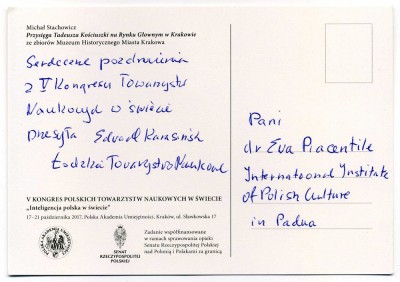 Michał Stachowicz
Przysięga Tadeusza Kościuszki na Rynku Głównym w Krakowie
ze zbiorów Muzeum Historycznego Miasta Krakowa
Serdeczne pozdrowienia
z V Kongresu Towarzystw
Naukowych w świecie
Przesyła Edward Karasiński
Łódzkie Towarzystwo Naukowe
Pani
dr Eva Piacentile
International Institute
of Polish Culture
in Padua
V KONGRES POLSKICH TOWARZYSTW NAUKOWYCH W ŚWIECIE
„Inteligencja polska w świecie”
17–21 października 2017, Polska Akademia Umiejętności, Kraków, ul. Sławkowska 17
SENAT
RZECZYPOSPOLITEJ
POLSKIEJ
Zadanie współfinansowane
w ramach sprawowania opieki
Senatu Rzeczypospolitej Polskiej
nad Polonią i Polakami za granicą